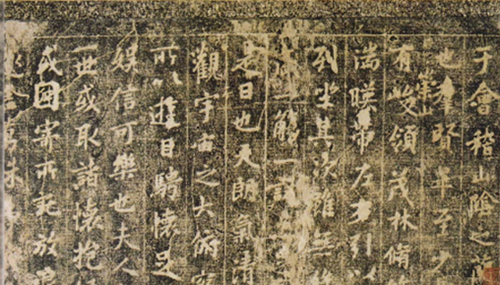 于會稽山陰之
也羣賢畢至少
崇山
有峻領茂林脩
湍暎帶左右引以
列坐其次雖無絲
一觴一詠
是日也天朗氣清
觀宇宙之大俯察
所以遊目騁懷足
娛信可樂也夫人
一世或取諸懷抱
或因寄所託放浪
舍萬殊